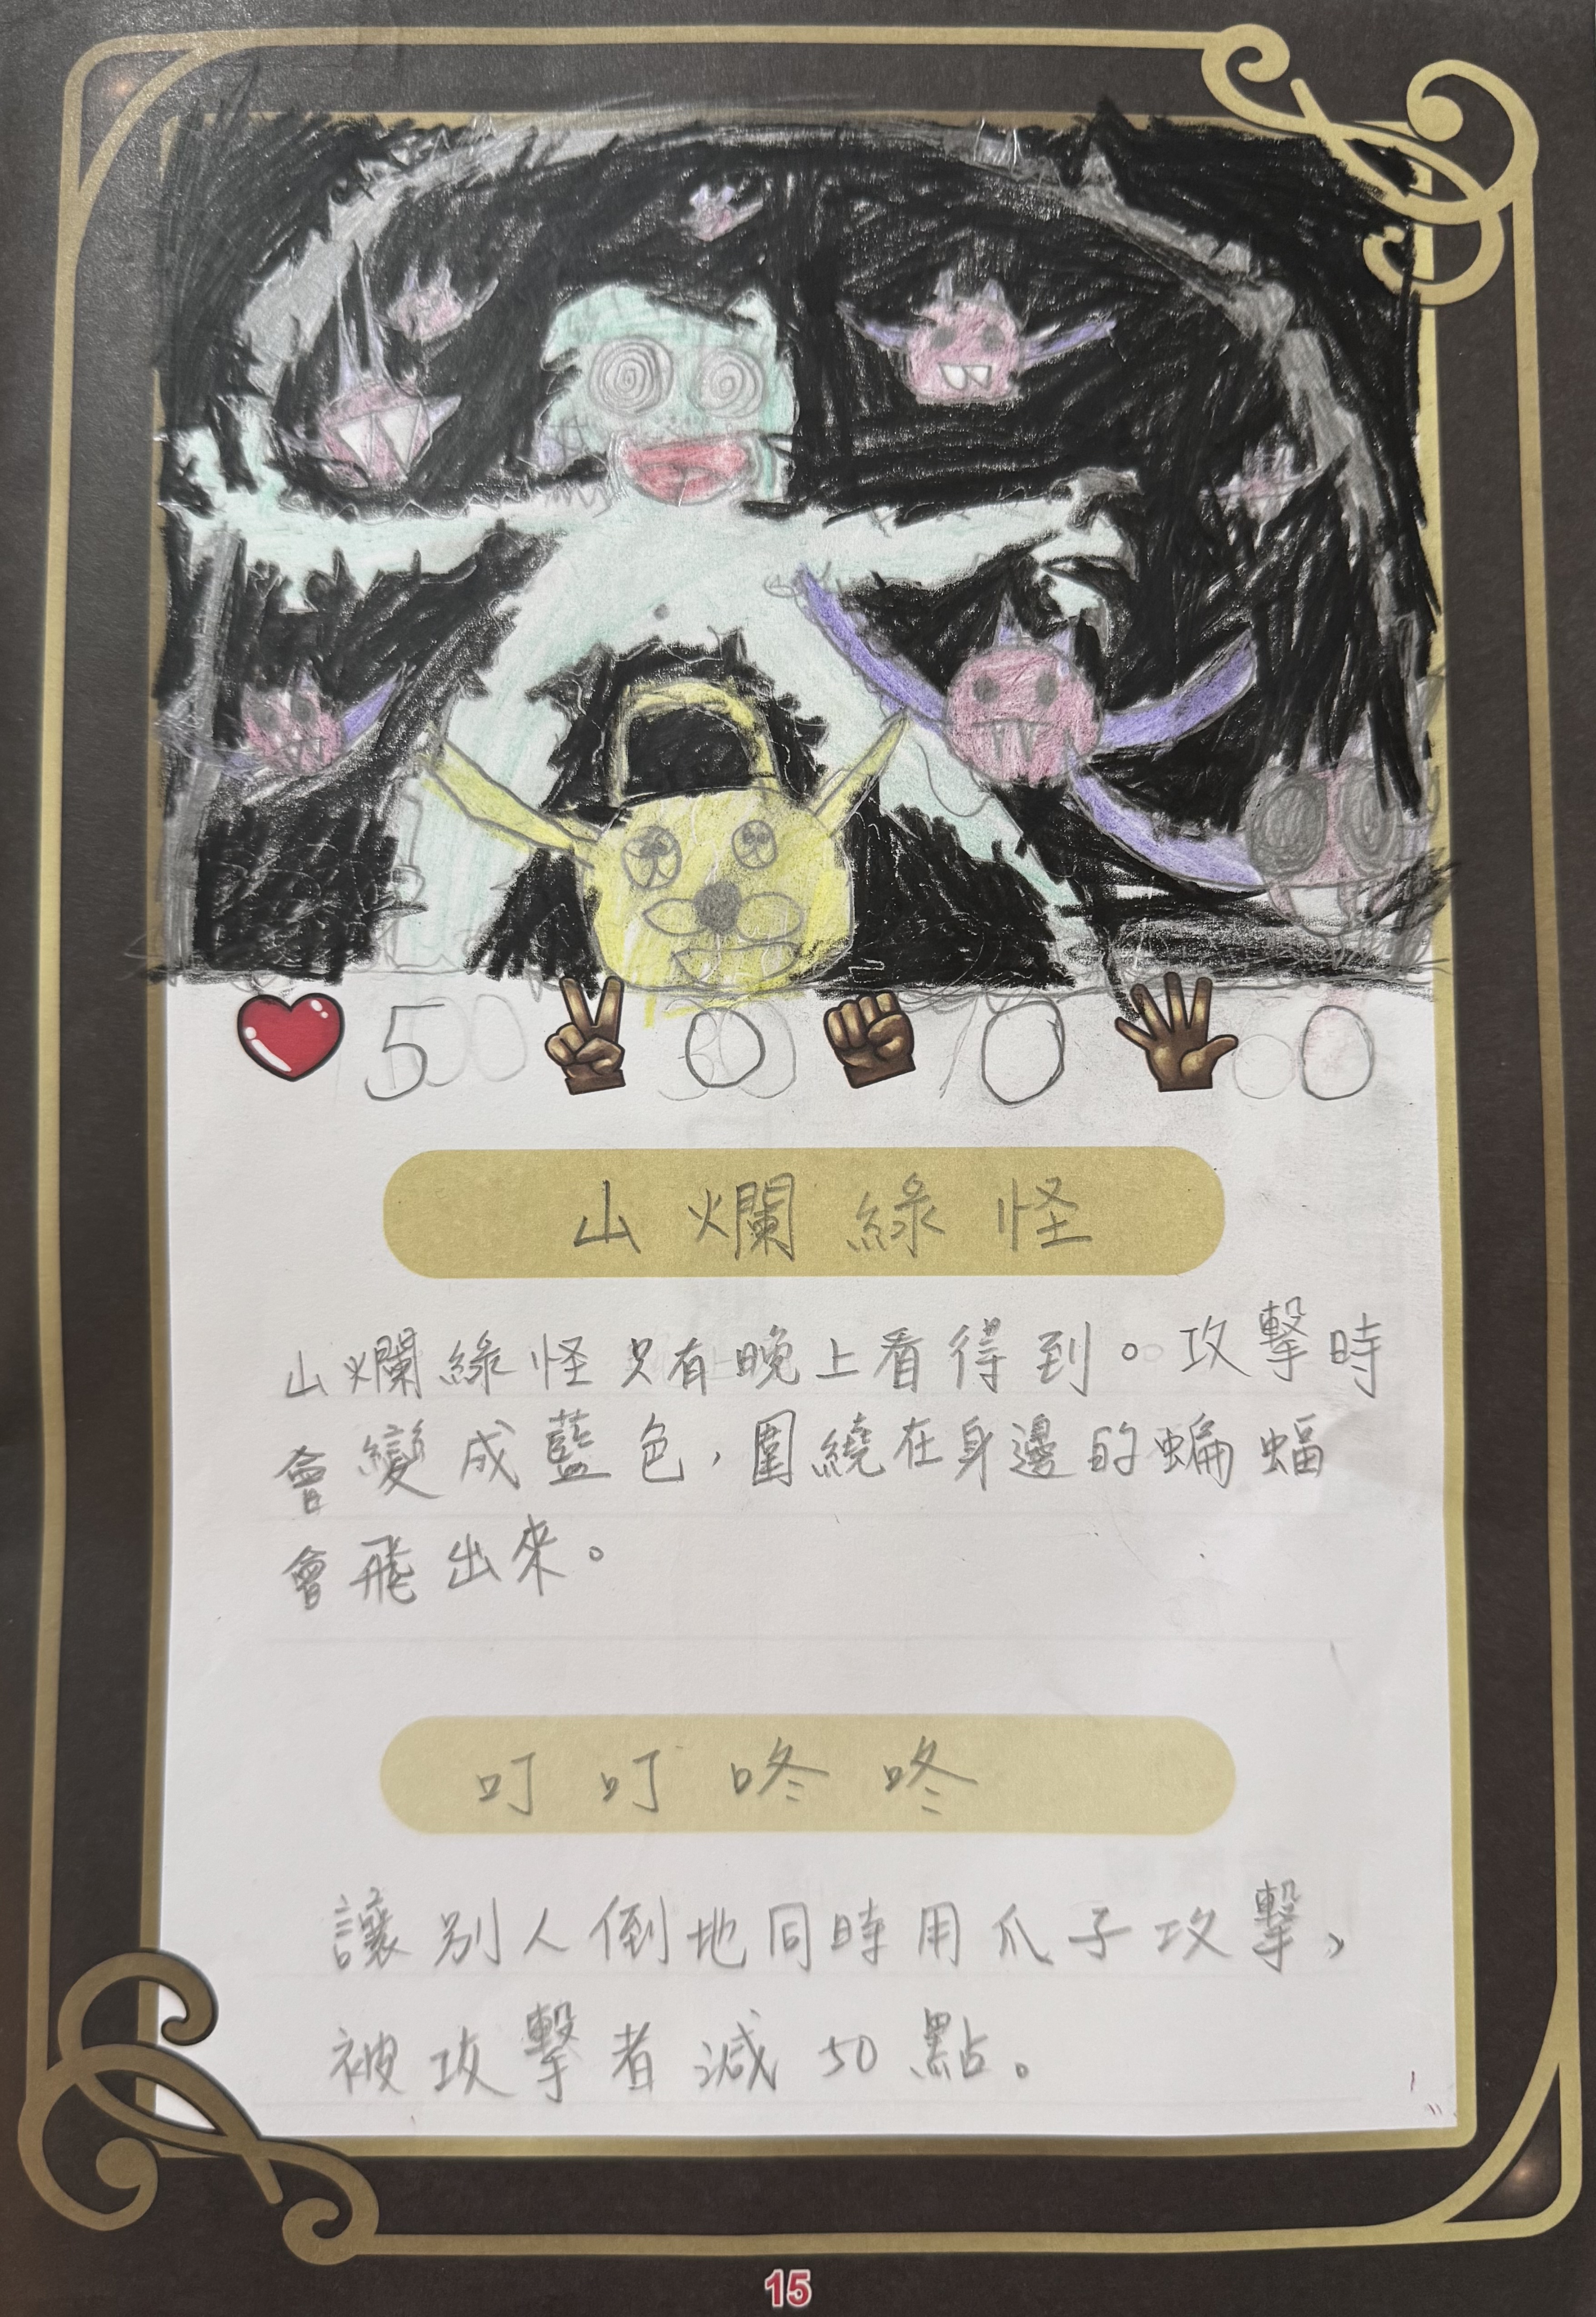 5 0 0 0
山爛綠怪
山爛綠怪只有晚上看得到。攻擊時
會變成藍色，圍繞在身邊的蝙蝠
會飛出來。
叮叮咚咚
讓別人倒地同時用爪子攻擊，
被攻擊者減50點。
15